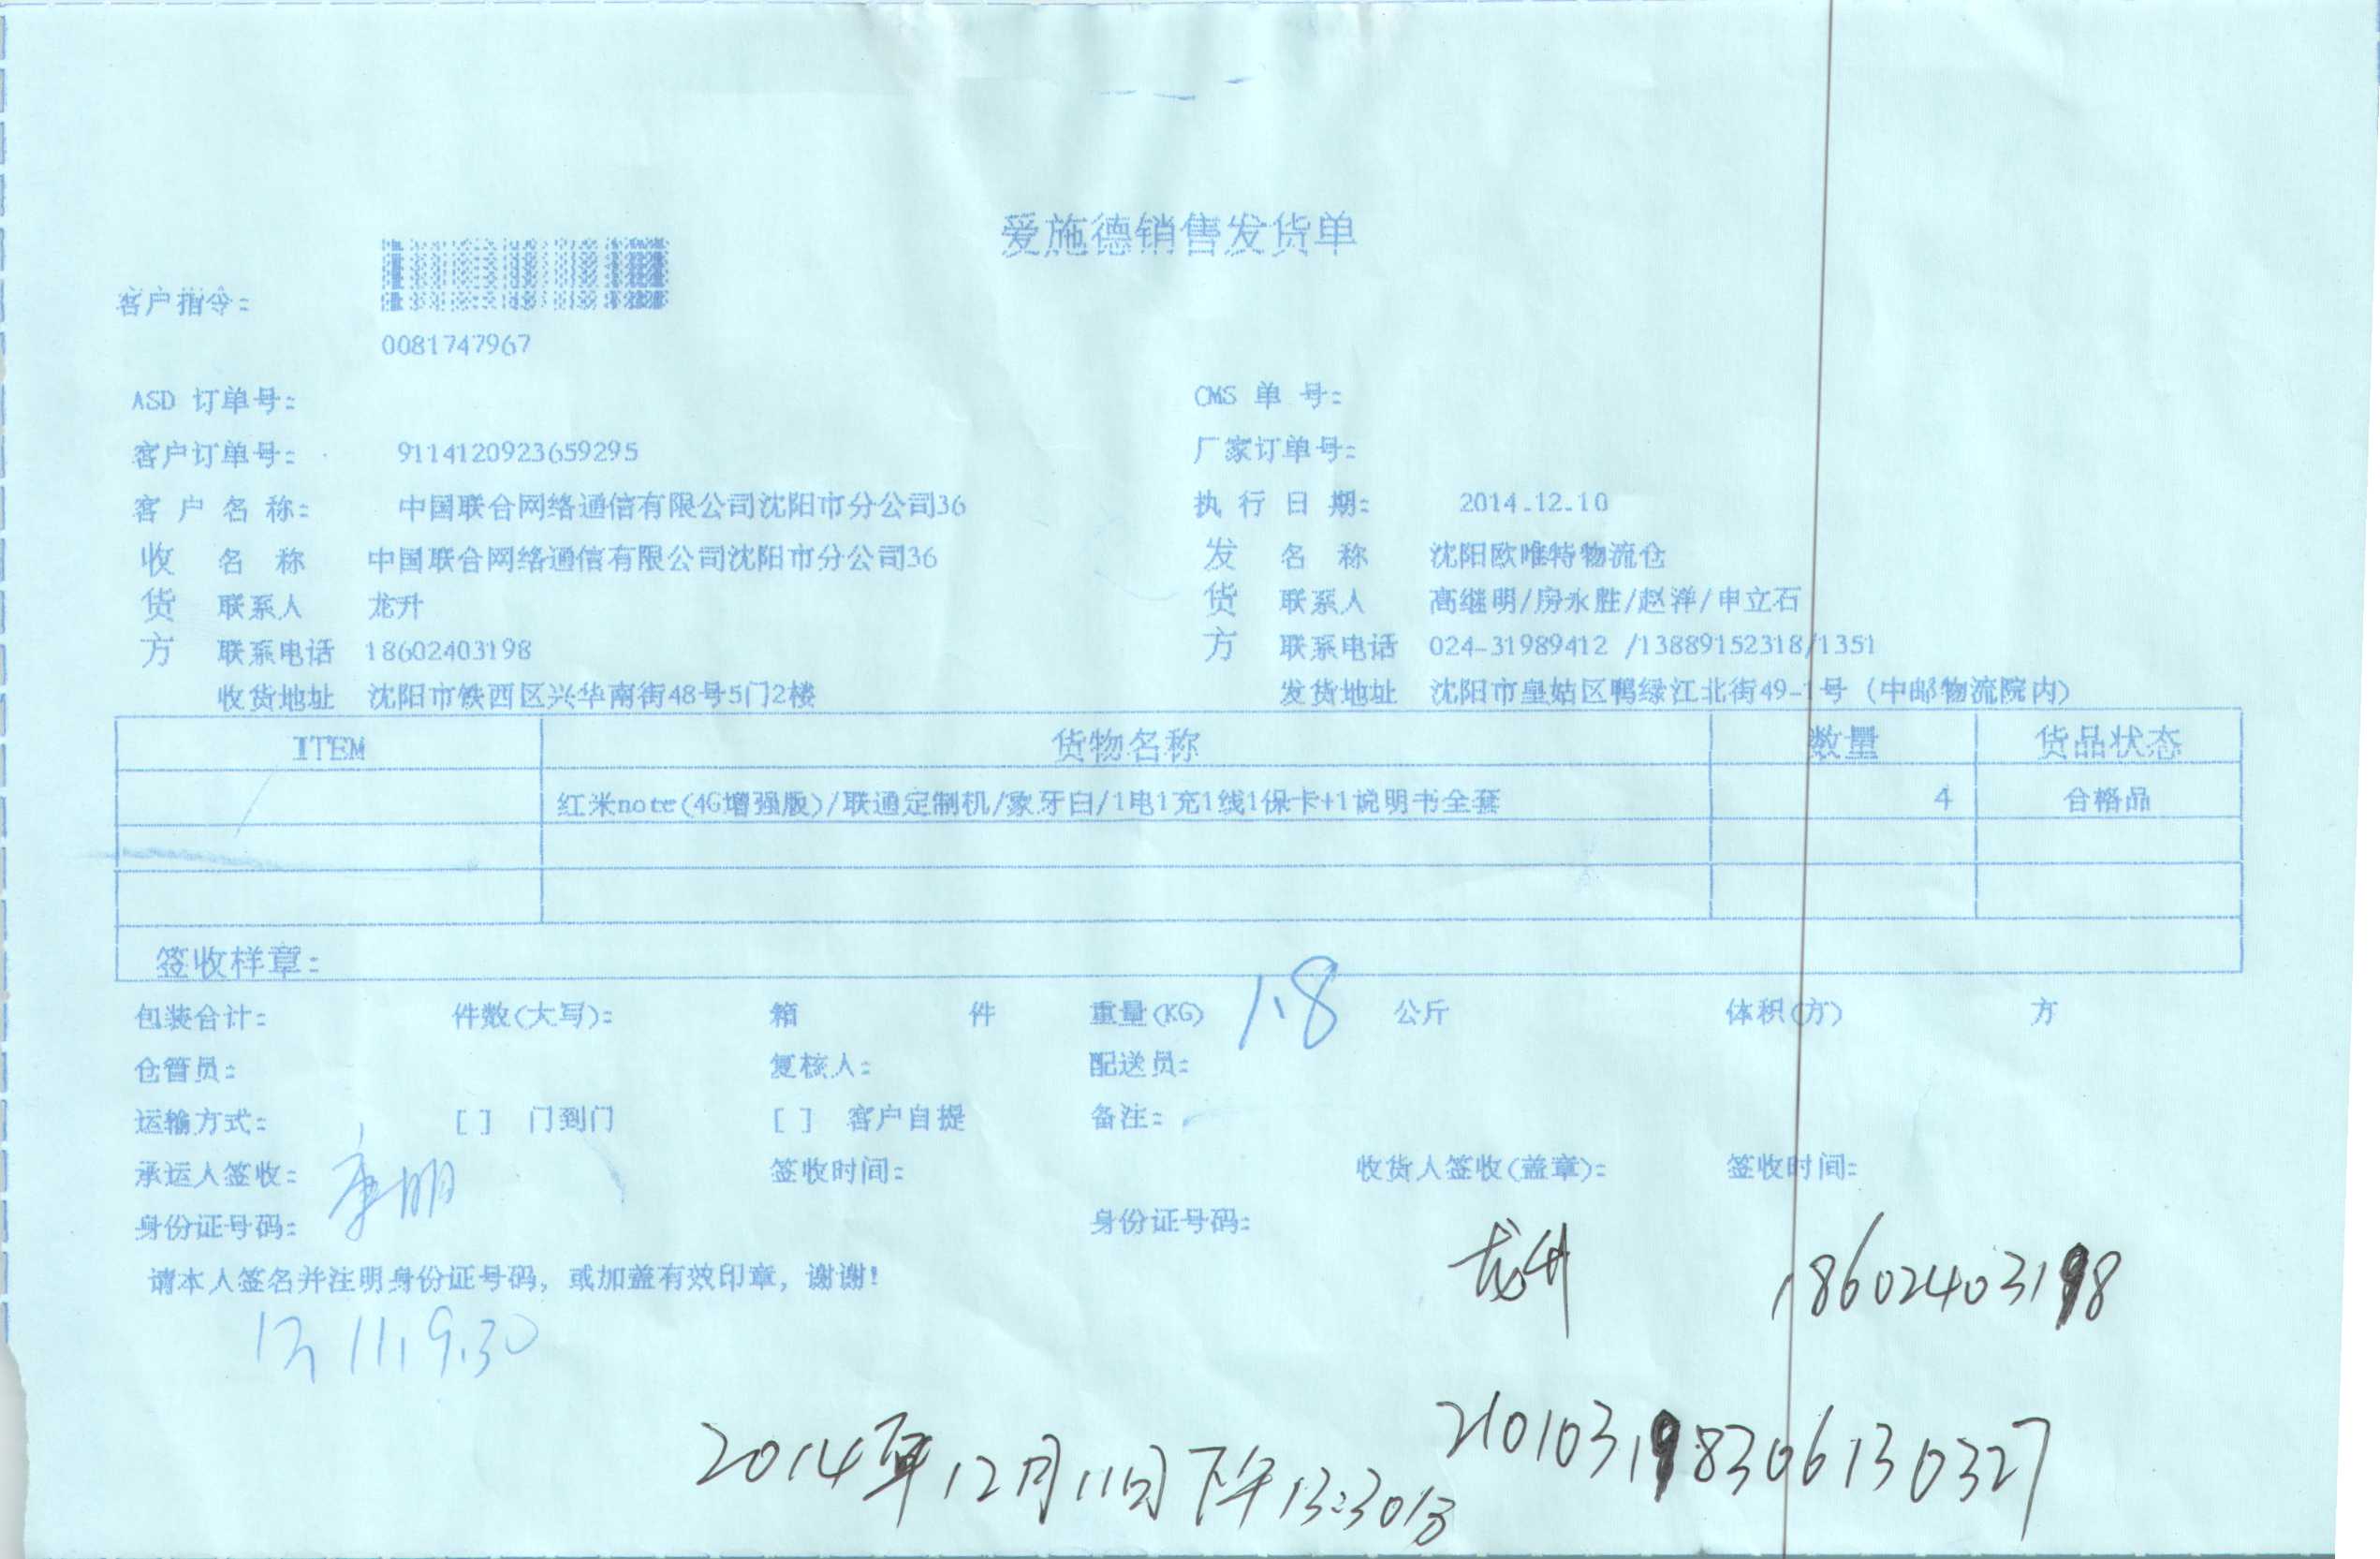 爱施德销售发货单
客户指令:
0081747967
ASD 订单号: CMS 单 号:
客户订单号: 9114120923659295 厂家订单号:
客 户 名 称: 中国联合网络通信有限公司沈阳市分公司36 执 行 日 期: 2014.12.10
收 名 称 中国联合网络通信有限公司沈阳市分公司36 发 名 称 沈阳欧唯特物流仓
货 联系人 龙升 货 联系人 高继明/房永胜/赵洋/申立石
方 联系电话 18602403198 方 联系电话 024-31989412 /13889152318/1351
收货地址 沈阳市铁西区兴华南街48号5门2楼 发货地址 沈阳市皇姑区鸭绿江北街49-1号 (中邮物流院内)
ITEM 货物名称 数量 货品状态
红米note(4G增强版)/联通定制机/象牙白/1电1充1线1保卡+1说明书全套 4 合格品
签收样章:
包装合计: 件数(大写): 箱 件 重量(KG) 1.8 公斤 体积(方) 方
仓管员: 复核人: 配送员:
运输方式: [ ] 门到门 [ ] 客户自提 备注:
承运人签收: 签收时间: 收货人签收(盖章): 签收时间:
身份证号码: 身份证号码: 龙升 18602403198
请本人签名并注明身份证号码, 或加盖有效印章, 谢谢!
12, 11, 9.30
210103198306130327
2014年12月11日下午13:30